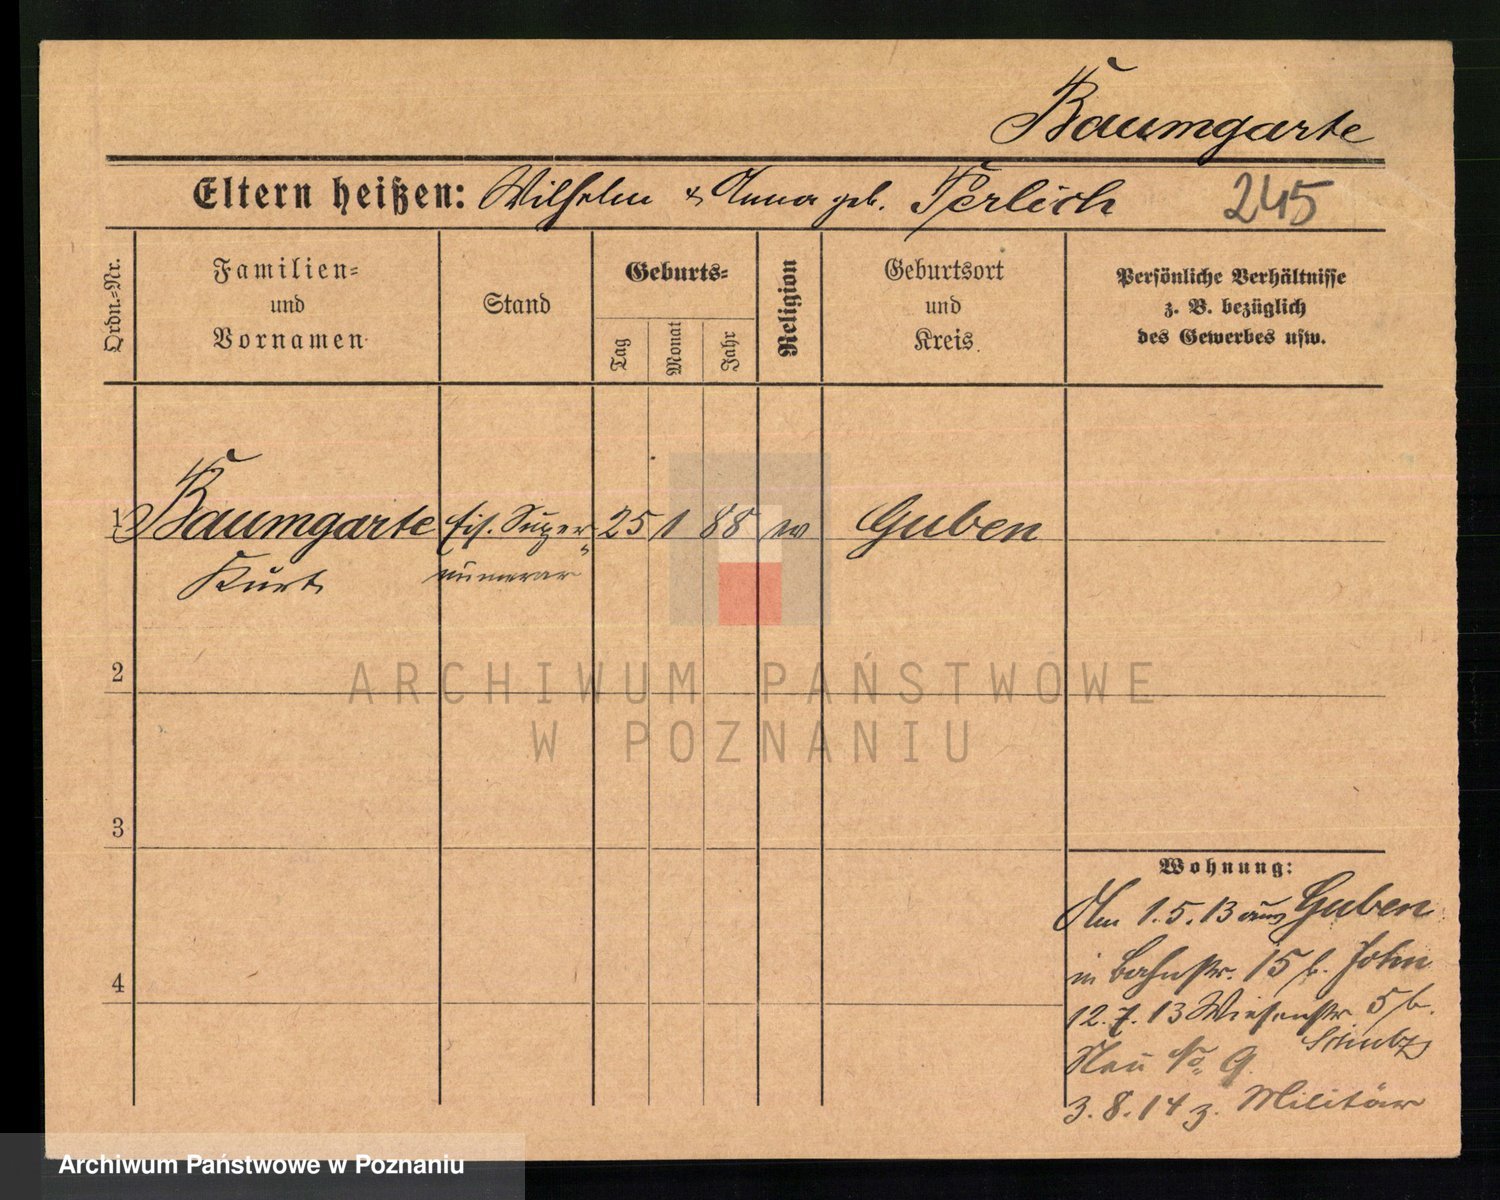 Baumgarte
Eltern heißen: Wilhelm & Anna geb. Perlich 245
Ordn.=Nr.
Familien=
und
Vornamen
Stand
Geburts=
Tag
Monat
Jahr
Religion
Geburtsort
und
Kreis.
Persönliche Verhältnisse
z. B. bezüglich
des Gewerbes usw.
1 Baumgarte Eis. Super= 25 1 88 ev Guben
Kurt numerar
2
3
4
Wohnung:
Am 1.5.13 aus Guben
in Bahnstr. 15 b. John
12.7.13 Wiesenstr 5 b.
Schulz
Neu No 9.
3.8.14 z. Militär
ARCHIWUM PAŃSTWOWE
W POZNANIU
Archiwum Państwowe w Poznaniu